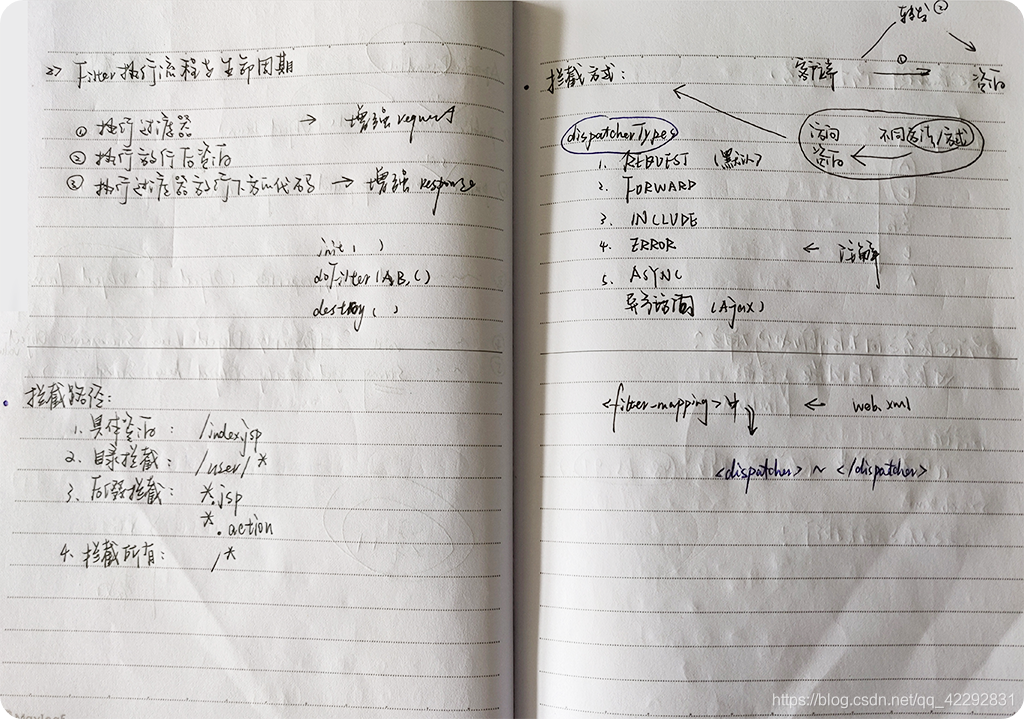 2) Filter执行流程与生命周期
① 执行过滤器 → 增强request
② 执行放行后资源
③ 执行过滤器放行下方的代码 → 增强response
init( )
doFilter(A,B,C)
destroy( )
拦截路径:
1. 具体资源: /index.jsp
2. 目录拦截: /user/*
3. 后缀拦截: *.jsp
*.action
4. 拦截所有: /*
转发②
拦截方式: 客户端 ① 资源
dispatcherTypes
访问 不同方法/方式
资源
1. REQUEST (默认)
2. FORWARD
3. INCLUDE
4. ERROR ← 注解
5. ASYNC
异步访问 (Ajax)
<filter-mapping>中 ← web.xml
<dispatcher> ~ </dispatcher>
https://blog.csdn.net/qq_42292831